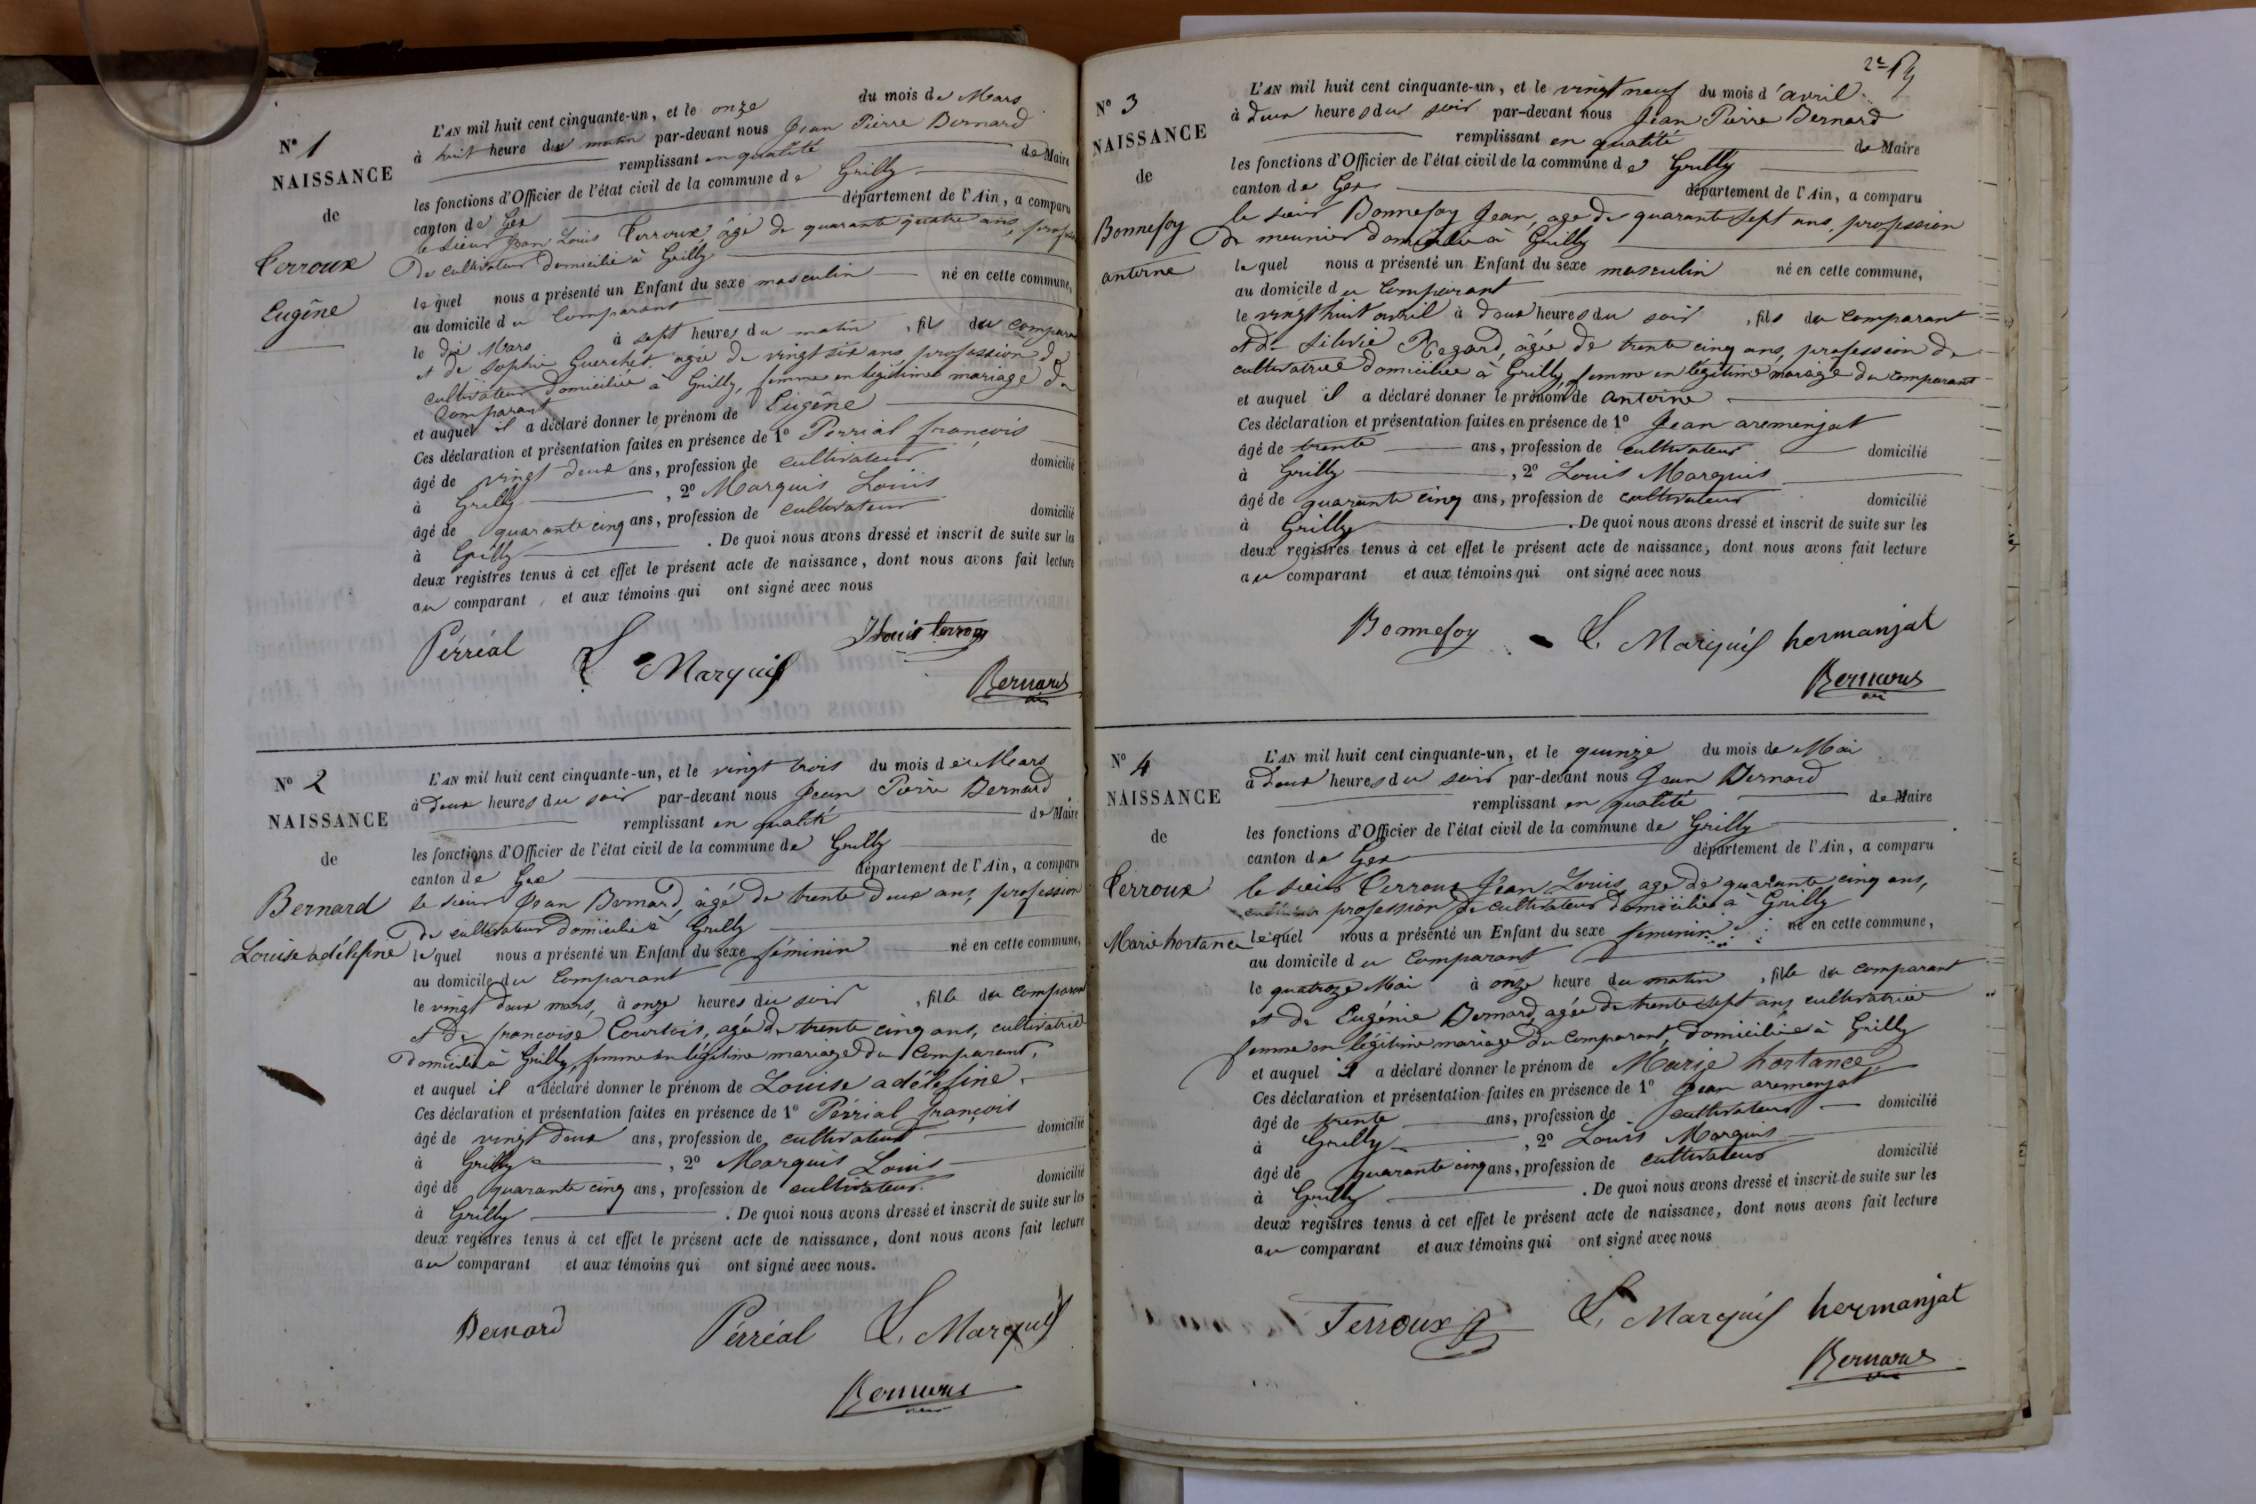 N° 1
NAISSANCE
de
Terroux
Eugêne
L'AN mil huit cent cinquante-un, et le onze du mois de Mars
à huit heure du matin par-devant nous Jean Pierre Bernard
remplissant en qualité de Maire
les fonctions d'Officier de l'état civil de la commune de Grilly
canton de Gex département de l'Ain, a comparu
le sieur Jean Louis Terroux, âgé de quarante quatre ans, profession
de cultivateur domicilié à Grilly
lequel nous a présenté un Enfant du sexe masculin né en cette commune,
au domicile du Comparant
le dix Mars à sept heures du matin, fils du comparant
et de Sophie Guerchet agée de vingt six ans, profession de
cultivateur domiciliée à Grilly, femme en légitime mariage du
Comparant
et auquel il a déclaré donner le prénom de Eugêne
Ces déclaration et présentation faites en présence de 1° Perrial françois
âgé de vingt deux ans, profession de cultivateur domicilié
à Grilly, 2° Marquis Louis
âgé de quarante cinq ans, profession de cultivateur domicilié
à Grilly. De quoi nous avons dressé et inscrit de suite sur les
deux registres tenus à cet effet le présent acte de naissance, dont nous avons fait lecture
au comparant et aux témoins qui ont signé avec nous
Pérréal L. Marquis JLouis terroux
Bernard
N° 2
NAISSANCE
de
Bernard
Louise adélefine
L'AN mil huit cent cinquante-un, et le vingt trois du mois de Mars
à deux heures du soir par-devant nous Jean Pierre Bernard
remplissant en qualité de Maire
les fonctions d'Officier de l'état civil de la commune de Grilly
canton de Gex département de l'Ain, a comparu
le sieur Jean Bernard, âgé de trente deux ans, profession
de cultivateur domicilié à Grilly
lequel nous a présenté un Enfant du sexe féminin né en cette commune,
au domicile du Comparant
le vingt deux mars, à onze heures du soir, fille du comparant
et de françoise Courtois, agée de trente cinq ans, cultivatrice
domicilié à Grilly, femme en légitime mariage du Comparant,
et auquel il a déclaré donner le prénom de Louise adélefine
Ces déclaration et présentation faites en présence de 1° Perrial françois
âgé de vingt deux ans, profession de cultivateur domicilié
à Grilly, 2° Marquis Louis
âgé de quarante cinq ans, profession de cultivateur domicilié
à Grilly. De quoi nous avons dressé et inscrit de suite sur les
deux registres tenus à cet effet le présent acte de naissance, dont nous avons fait lecture
au comparant et aux témoins qui ont signé avec nous.
Bernard Pérréal L. Marquis
Bernard
N° 3
NAISSANCE
de
Bonnefoy
antoine
L'AN mil huit cent cinquante-un, et le vingt neuf du mois d'avril
à deux heures du soir par-devant nous Jean Pierre Bernard
remplissant en qualité de Maire
les fonctions d'Officier de l'état civil de la commune de Grilly
canton de Gex département de l'Ain, a comparu
le sieur Bonnefoy Jean, age de quarante sept ans, profession
de meunier domicilié à Grilly
lequel nous a présenté un Enfant du sexe masculin né en cette commune,
au domicile du Comparant
le vingt huit avril à deux heures du soir, fils du comparant
et de Silvie Regard, âgée de trente cinq ans, profession de
cultivatrice domiciliée à Grilly, femme en légitime mariage du comparant
et auquel il a déclaré donner le prénom de antoine
Ces déclaration et présentation faites en présence de 1° Jean aremenjat
âgé de trente ans, profession de cultivateur domicilié
à Grilly, 2° Louis Marquis
âgé de quarante cinq ans, profession de cultivateur domicilié
à Grilly. De quoi nous avons dressé et inscrit de suite sur les
deux registres tenus à cet effet le présent acte de naissance, dont nous avons fait lecture
au comparant et aux témoins qui ont signé avec nous
Bonnefoy L. Marquis hermanjat
Bernard
N° 4
NAISSANCE
de
Terroux
Marie hortance
L'AN mil huit cent cinquante-un, et le quinze du mois de Mai
à deux heures du soir par-devant nous Jean Bernard
remplissant en qualité de Maire
les fonctions d'Officier de l'état civil de la commune de Grilly
canton de Gex département de l'Ain, a comparu
le sieur Terroux Jean Louis, age de quarante cinq ans,
profession de cultivateur domicilié à Grilly
lequel nous a présenté un Enfant du sexe feminin né en cette commune,
au domicile du Comparant
le quatorze Mai à onze heure du matin, fille du comparant
et de Eugénie Bernard, agée de trente sept ans cultivatrice
femme en légitime mariage du Comparant, domiciliée à Grilly
et auquel il a déclaré donner le prénom de Marie hortance
Ces déclaration et présentation faites en présence de 1° Jean aremenjat
âgé de trente ans, profession de cultivateur domicilié
à Grilly, 2° Louis Marquis
âgé de quarante cinq ans, profession de cultivateur domicilié
à Grilly. De quoi nous avons dressé et inscrit de suite sur les
deux registres tenus à cet effet le présent acte de naissance, dont nous avons fait lecture
au comparant et aux témoins qui ont signé avec nous
Terroux L. Marquis hermanjat
Bernard